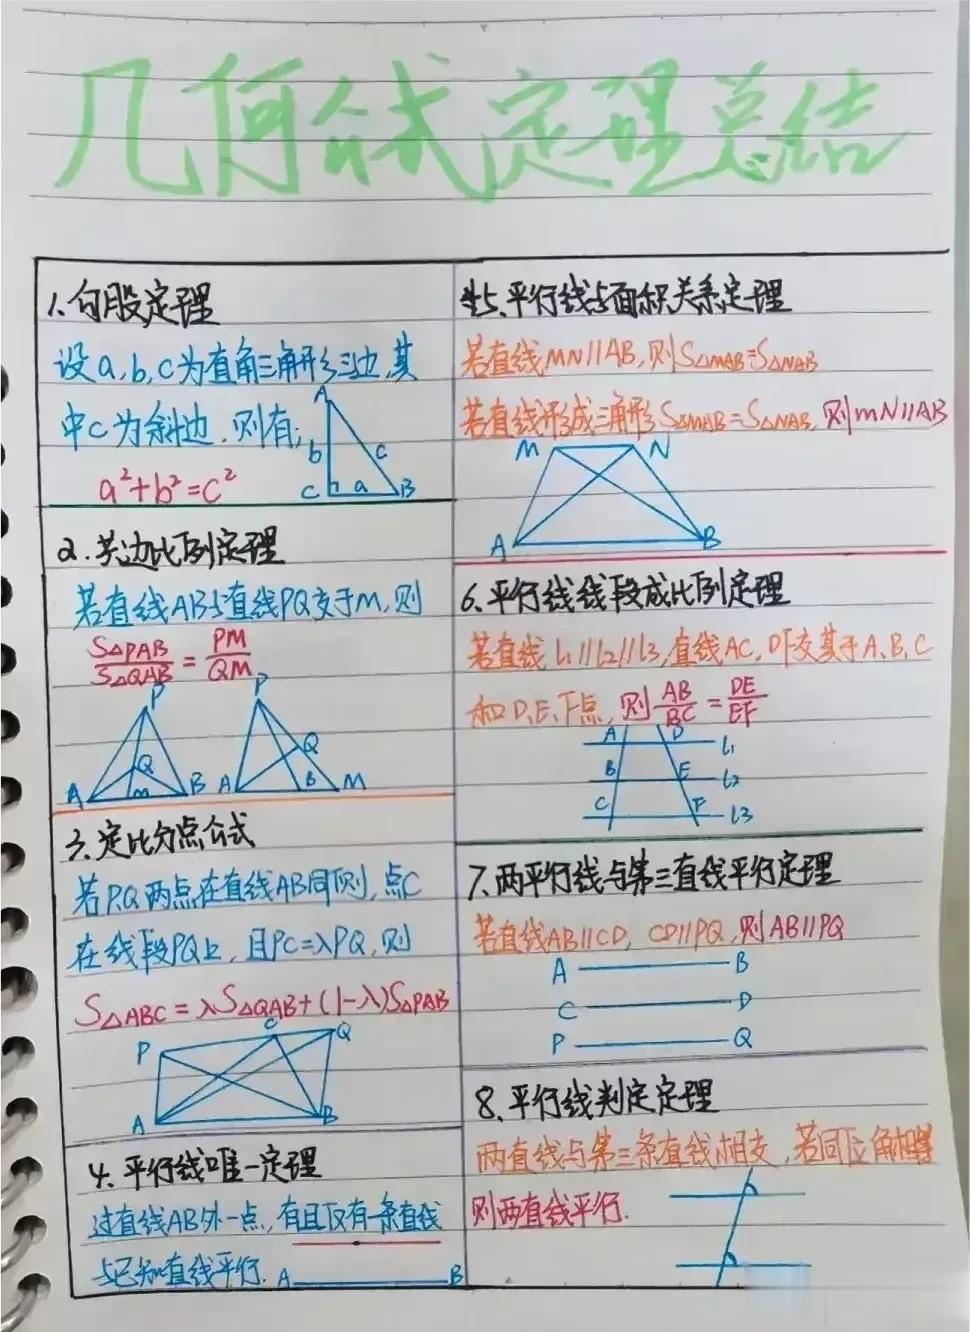 几何公式定理总结
1.勾股定理
设a,b,c为直角三角形三边,其
中c为斜边.则有;
a²+b²=c²
A
b
c
C
a
B
2.共边比例定理
若直线AB与直线PQ交于M,则
S△PAB/S△QAB=PM/QM
P
Q
A
M
B
P
Q
A
B
M
3.定比分点公式
若P.Q两点在直线AB同侧,点C
在线段PQ上,且PC=λPQ,则
S△ABC=λS△QAB+(1-λ)S△PAB
P
C
Q
A
B
4.平行线唯一定理
过直线AB外一点,有且仅有一条直线
与已知直线平行.
A
B
5.平行线与面积关系定理
若直线MN//AB,则S△MAB=S△NAB
若直线形成三角形S△MAB=S△NAB,则MN//AB
M
N
A
B
6.平行线线段成比例定理
若直线l1//l2//l3,直线AC,DF交其于A、B、C
和D、E、F点,则AB/BC=DE/EF
A
D
l1
B
E
l2
C
F
l3
7.两平行线与第三直线平行定理
若直线AB//CD,CD//PQ,则AB//PQ
A
B
C
D
P
Q
8.平行线判定定理
两直线与第三条直线相交,若同位角相等
则两直线平行.